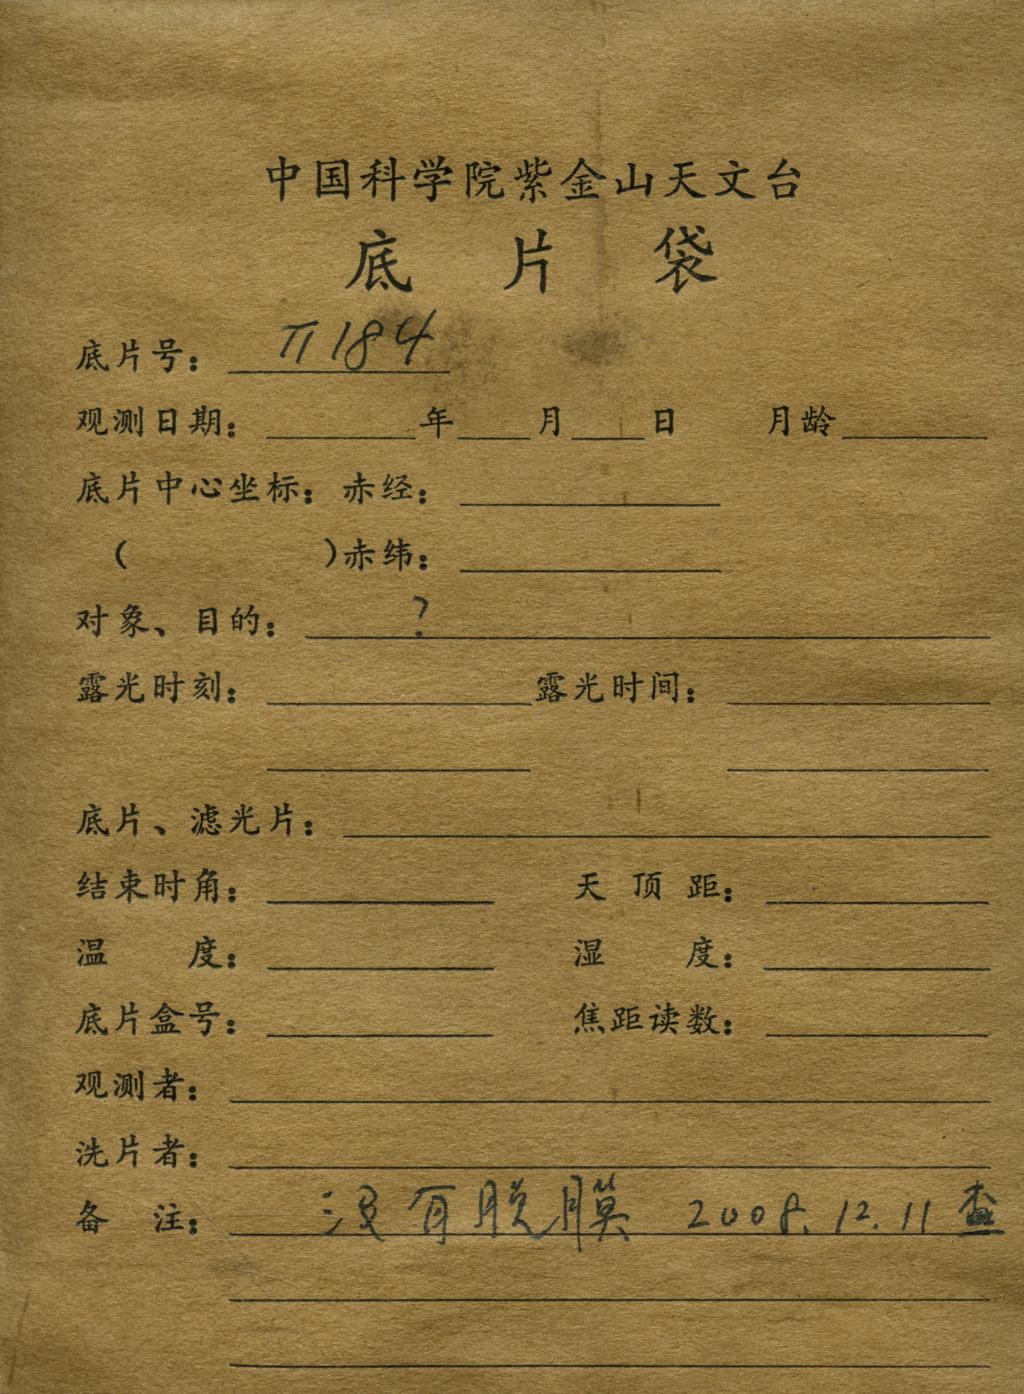 中国科学院紫金山天文台
底片袋
底片号: π184
观测日期: 年 月 日 月龄
底片中心坐标: 赤经:
( )赤纬:
对象、目的: ?
露光时刻: 露光时间:
底片、滤光片:
结束时角: 天顶距:
温度: 湿度:
底片盒号: 焦距读数:
观测者:
洗片者:
备注: 没有脱膜 2008.12.11